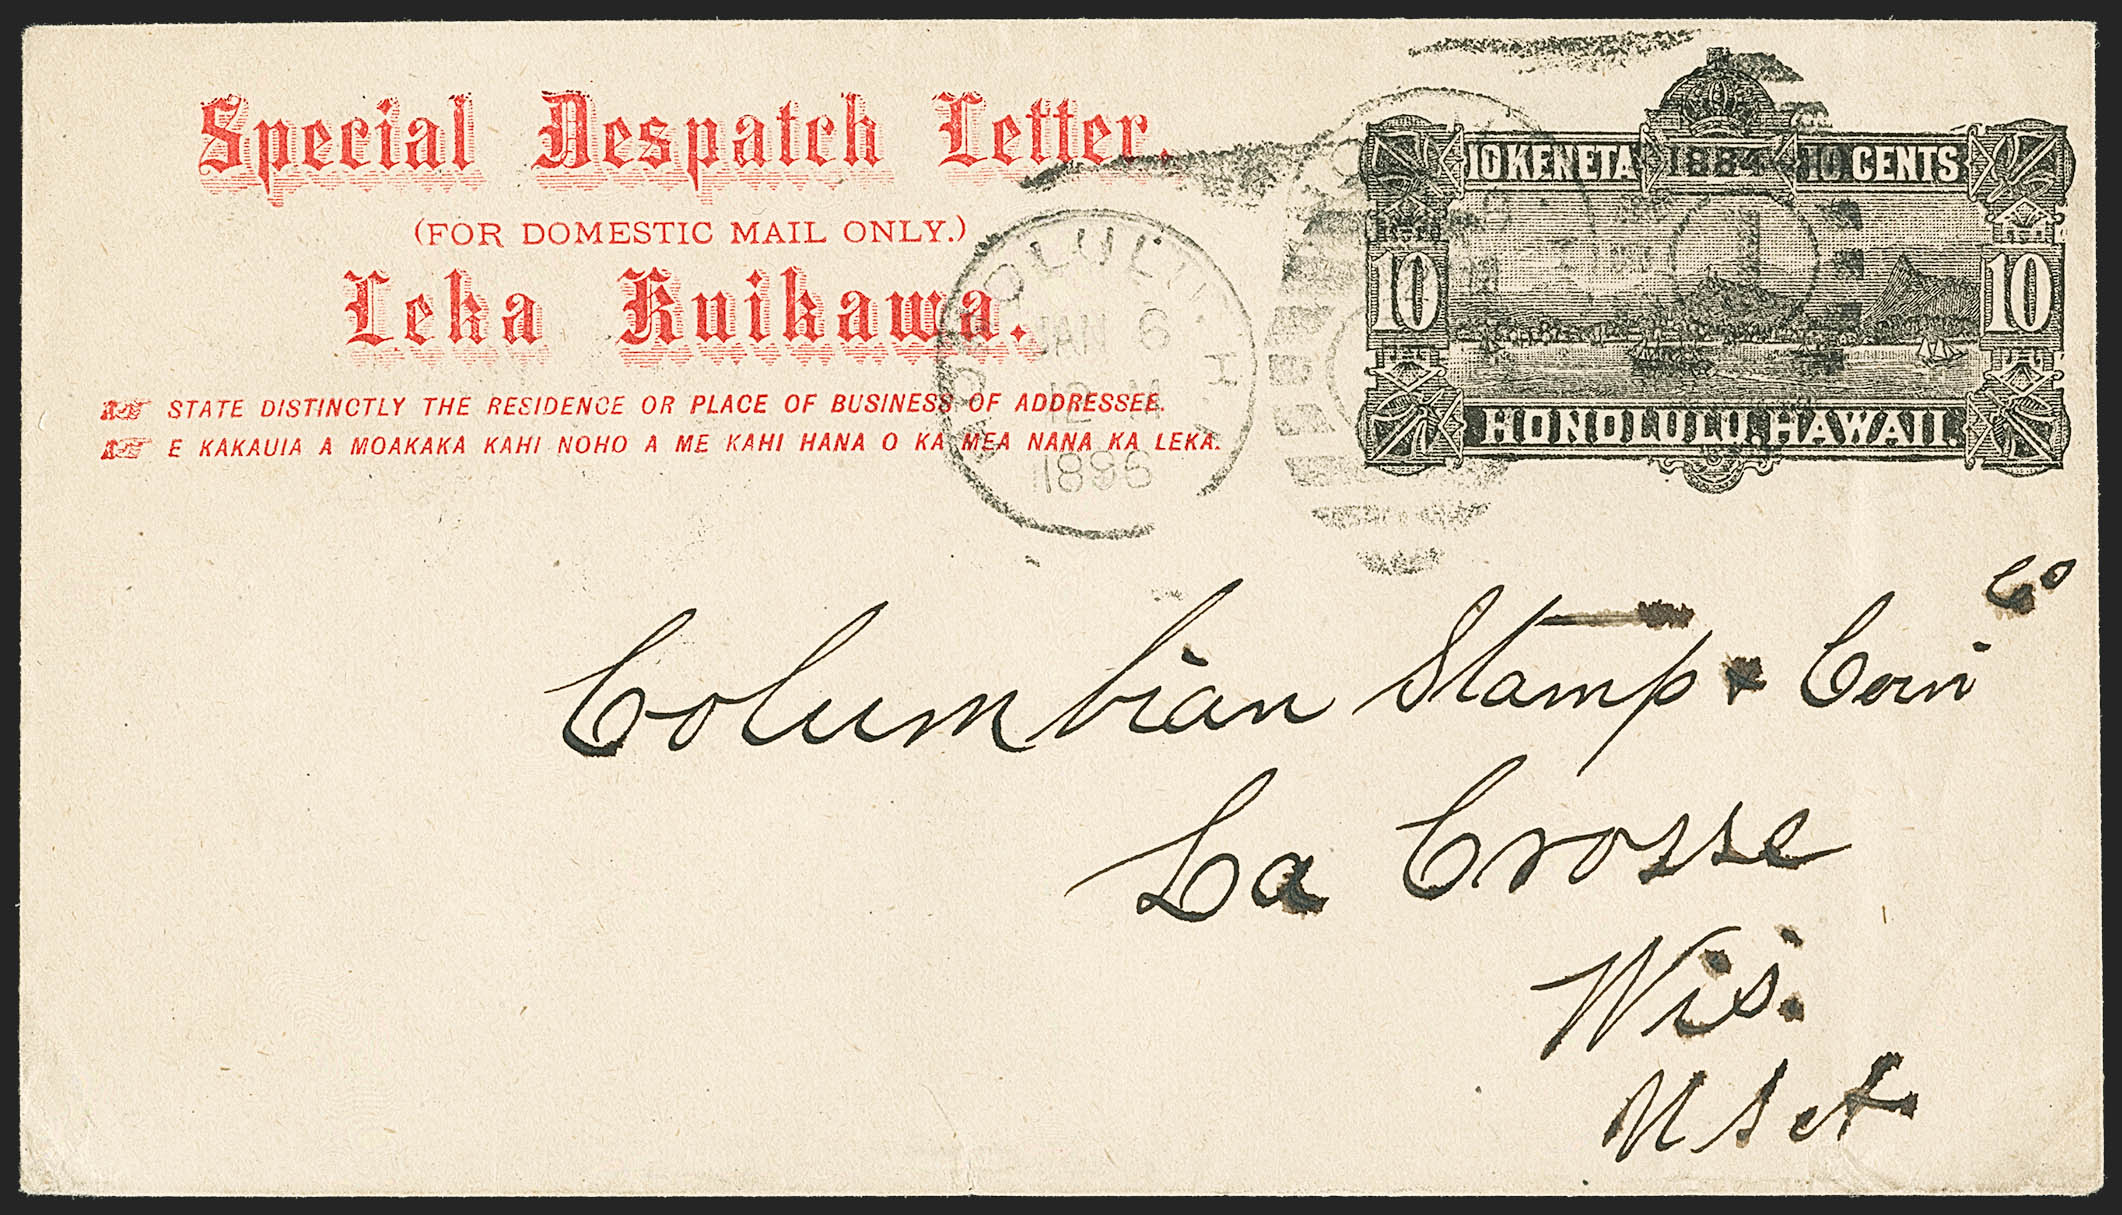 Special Despatch Letter.
(FOR DOMESTIC MAIL ONLY.)
Leka Kuikawa.
STATE DISTINCTLY THE RESIDENCE OR PLACE OF BUSINESS OF ADDRESSEE.
E KAKAUIA A MOAKAKA KAHI NOHO A ME KAHI HANA O KA MEA NANA KA LEKA.
HONOLULU. H.
JAN 6
12 M
1896
10 KENETA 1884 10 CENTS
10 10
HONOLULU, HAWAII.
Columbian Stamp & Coin Co
La Crosse
Wis.